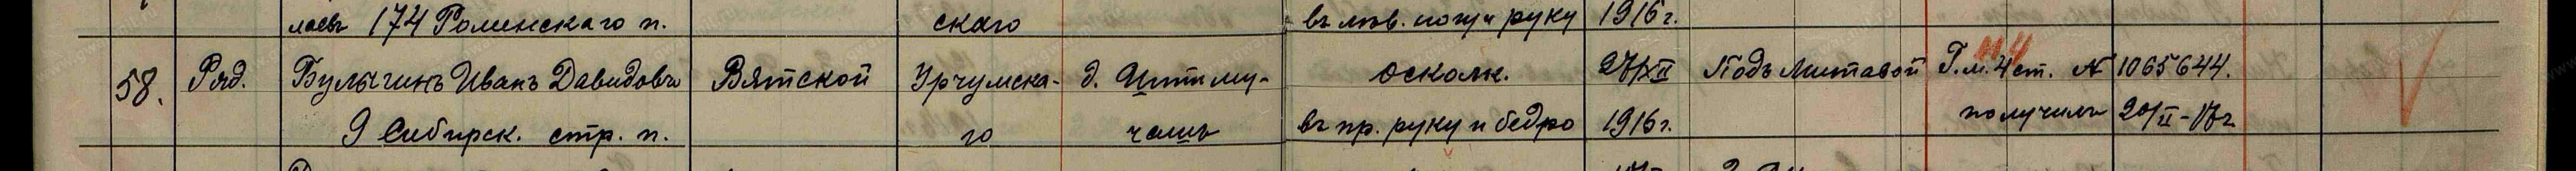 лаевъ 174 Роменскаго п. скаго въ лѣв. ногу и руку 1916 г.
58. Ряд. Булыгинъ Иванъ Давидовъ Вятской Урчумска- д. Ишти му- осколк. 27/XII Подъ Митавой Г.м. 4 ст. № 1065644.
9 Сибирск. стр. п. го чашъ въ пр. руку и бедро 1916 г. получилъ 20/II - 17 г.